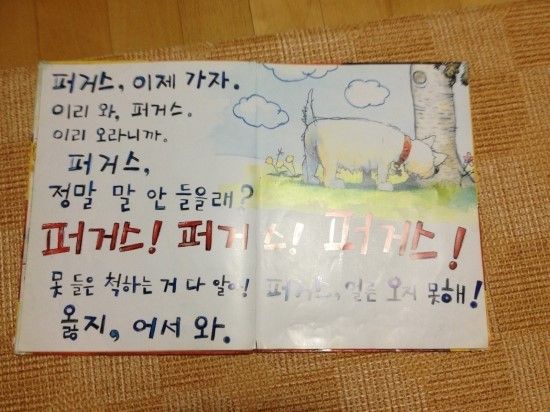 퍼거스, 이제 가자.
이리 와, 퍼거스.
이리 오라니까.
퍼거스,
정말 말 안 들을래?
퍼거스! 퍼거스! 퍼거스!
못 들은 척하는 거 다 알아! 퍼거스, 얼른 오지 못해!
옳지, 어서 와.